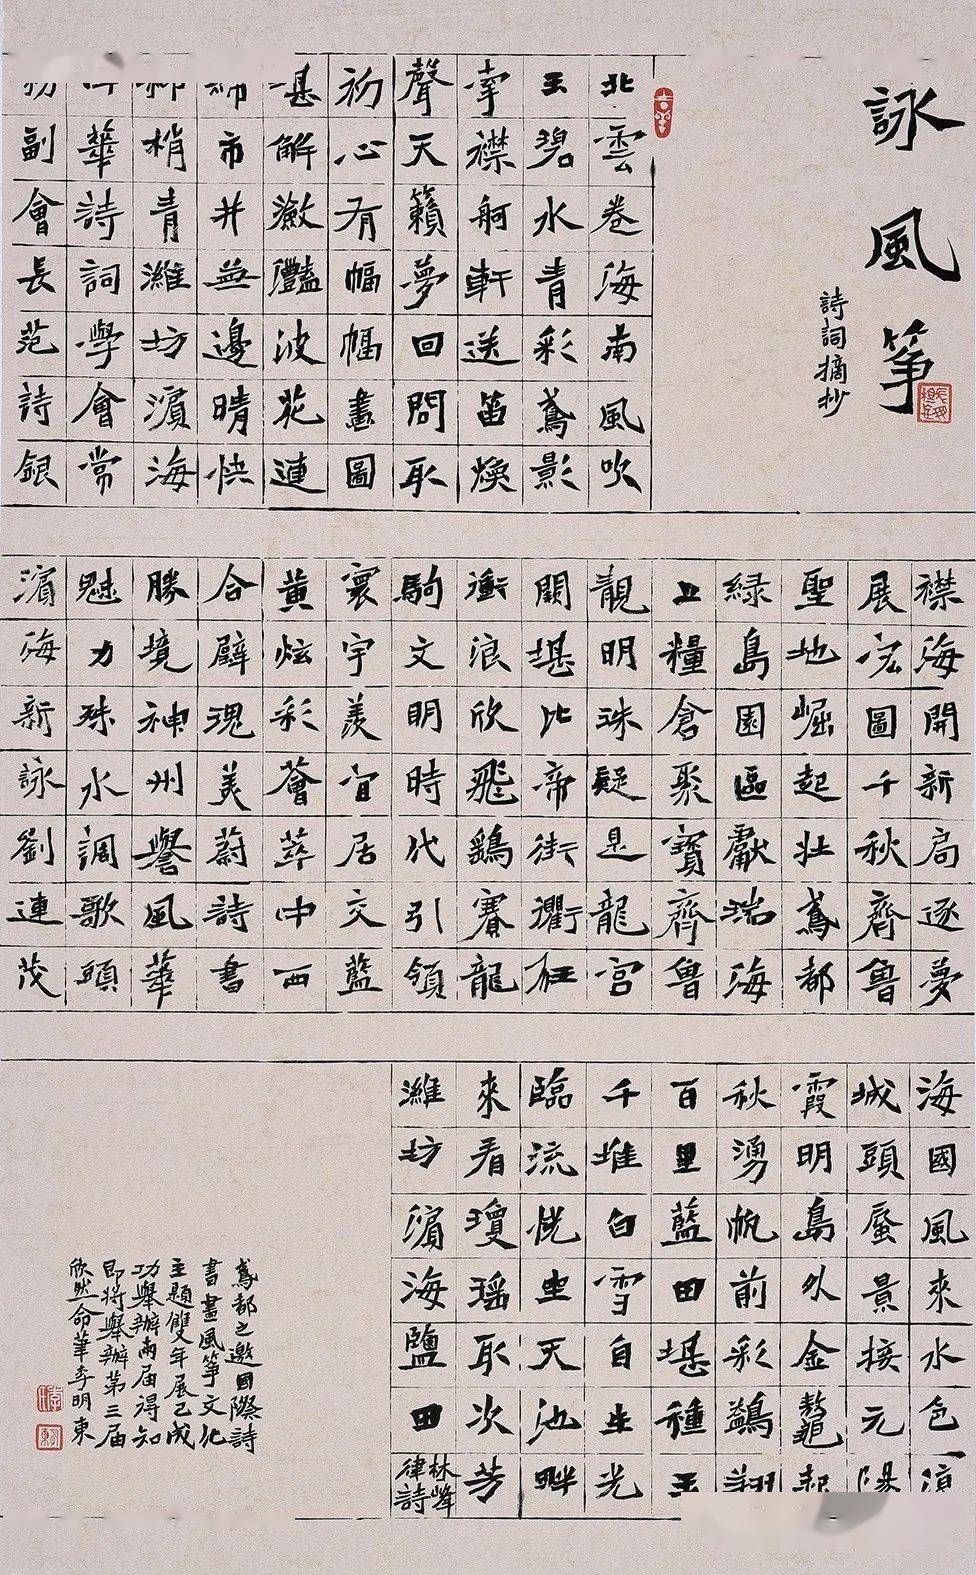 詠風箏
詩詞摘抄
北雲卷海南風吹
玉碧水青彩鳶影
牽襟舸軒送笛煥
聲天籟夢回問取
初心有幅幅畫圖
堪解瀲灩波花連
綿市井無邊晴快
柳梢青濰坊濱海
中華詩詞學會常
務副會長范詩銀
襟海開新局逐夢
展宏圖千秋齊魯
聖地崛起壯鳶都
綠島園區獻瑞海
上糧倉聚寶齊魯
靚明珠疑是龍宮
闕堪比帝街衢狂
衝浪欣飛鷂賽龍
駒文明時代引領
寰宇羨宜居交藍
黃炫彩薈萃中西
合璧瑰美蔚詩書
勝境神州譽風華
魅力殊水調歌頭
濱海新詠劉連茂
海國風來水色
城頭蜃景接元陽
霞明島外金鰲起
秋湧帆前彩鷁翔
百里藍田堪種玉
千堆白雪自生光
臨流恍坐天池畔
來看瓊瑤取次芳
濰坊濱海鹽田
林峰
律詩
鳶都之邀國際詩
書畫風箏文化
主題雙年展已成
功舉辦兩屆得知
即將舉辦第三屆
欣然命筆李明東